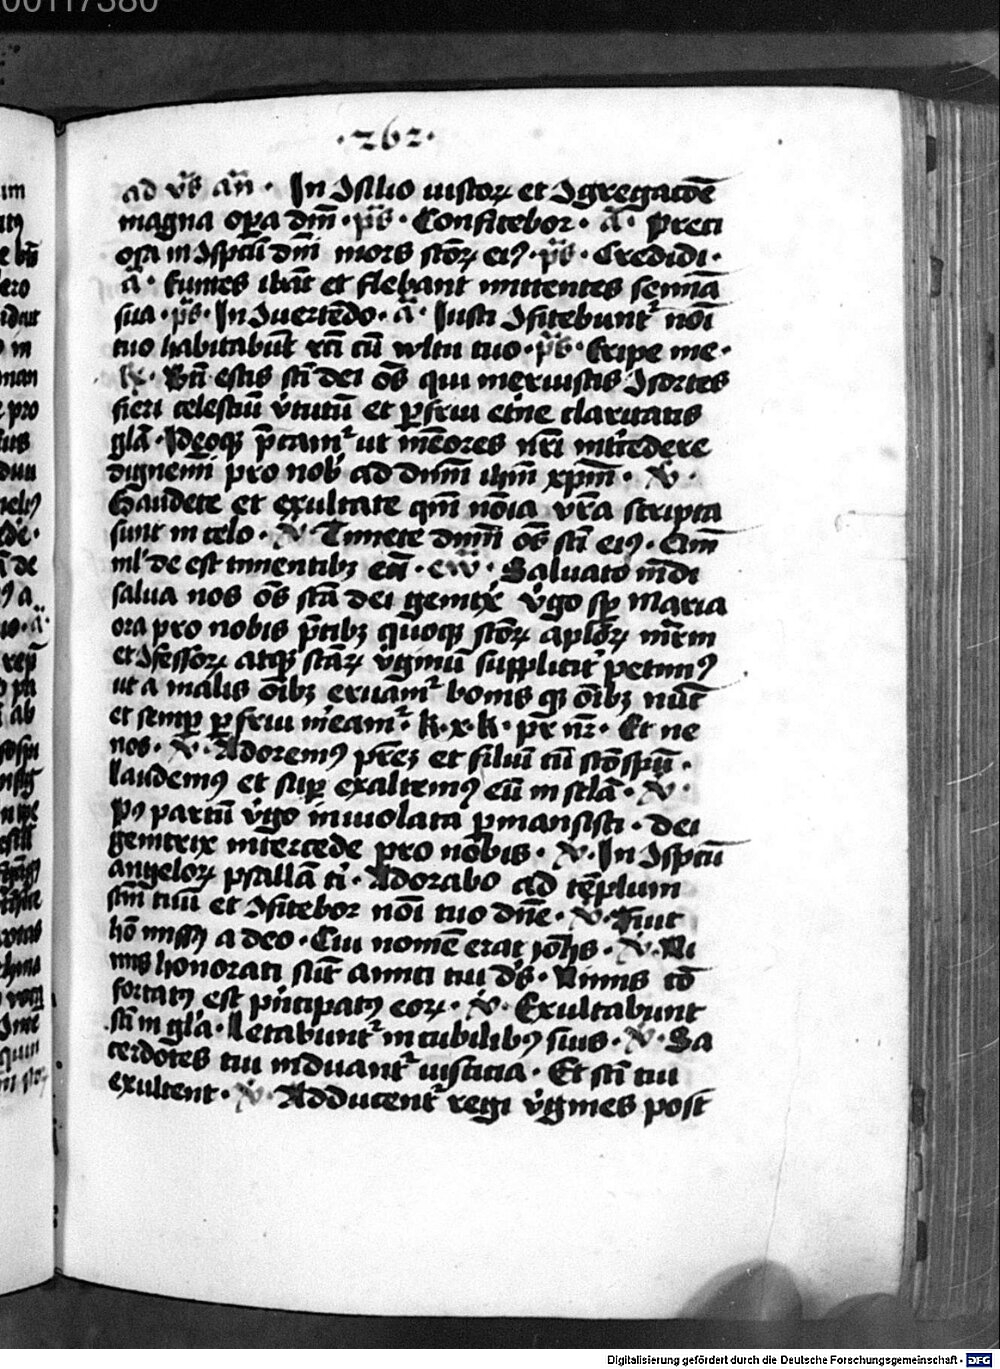 00117380
·262·
ad v̄s an̄ · In ꝯsilio iustoꝝ et ꝯgregacōe
magna oꝑa dn̄i · ps̄ · Confitebor · a᷒ · Preci
osa in ꝯspcū dn̄i mors sc̄oꝝ eiꝰ · ps̄ · Credidi ·
a᷒ · Euntes ibāt et flebant mittentes semīa
sua · ps̄ · In ꝯuertēdo · a᷒ · Iusti ꝯfitebunt᷑ noī
tuo habitabūt rc̄i cū vltu tuo · ps̄ · Eripe me ·
Bt̄i estis sc̄i dei oēs qui meruistis ꝯsortes
fieri celestiū v̄tutū et ꝑfrui etn̄e claritatis
gl̄a · Ideoqꝫ p̄cam᷑ ut mēores nr̄i int̄cedere
dignemī pro nob̄ ad dnm̄ ihm̄ xpm̄ · ℣ ·
Gaudete et exultate qm̄ nōīa vr̄a scripta
sunt in celo · ℣ · Timete dnm̄ oēs sc̄i eiꝰ · Qm̄
nl̄ de est timentibꝫ eū · ew̄ · Saluatō mūdi
salua nos oēs sc̄a dei geni͠tx v̄go sp̄ Maria
ora pro nobis p̄cibꝫ quoqꝫ sc̄oꝝ apl̄oꝝ mr̄m
et ꝯfessoꝝ atqꝫ sc̄aꝝ v̄ginū supplicit᷑ petimꝰ
ut a malis oībꝫ eruam᷑ bonis qꝫ oībꝫ nūc
et semꝑ ꝑfrui meam᷑ · k · x · k · pr̄ nr̄ · Et ne
nos · ℣ · Adoremꝰ prēꝫ et filiū cū sc̄o spū ·
laudemꝰ et suꝑ exaltemꝰ eū in sc̄la · ℣ ·
Pꝰ partū v̄go inuiolata ꝑmansisti · dei
genitrix int̄cede pro nobis · ℣ · In ꝯspcū
angeloꝝ psallā t̄i · Adorabo ad tēplum
sc̄m tuū et ꝯfitebor noī tuo dn̄e · ℣ · Fuit
hō missꝰ a deo · Cui nomē erat ioh̄s · ℣ · Ni
mis honorati sūt amici tui ds̄ · Nimis cō
fortatꝰ est pn̄cipatꝰ eoꝝ · ℣ · Exultabunt
sc̄i in gl̄a · Letabunt᷑ in cubilibꝰ suis · ℣ · Sa
cerdotes tui induant᷑ iusticia · Et sc̄i tui
exultent · ℣ · Adducent᷑ regi v̄gines post
Digitalisierung gefördert durch die Deutsche Forschungsgemeinschaft · DFG